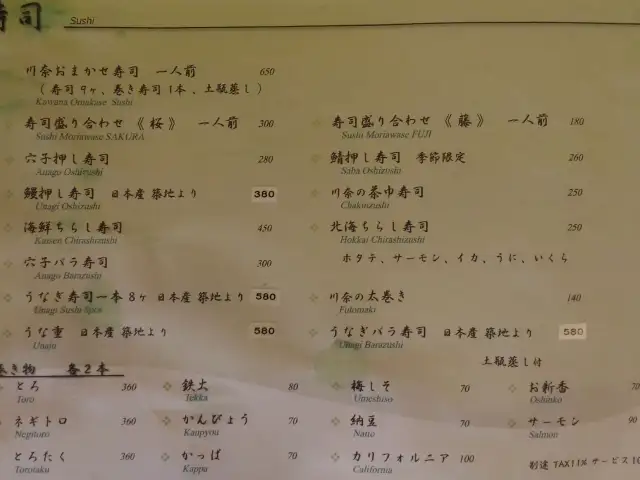 寿司 Sushi
川奈おまかせ寿司 一人前 650
( 寿司9ヶ、巻き寿司1本、土瓶蒸し )
Kawana Omakase Sushi
寿司盛り合わせ 《桜》 一人前 300
Sushi Moriawase SAKURA
寿司盛り合わせ 《藤》 一人前 180
Sushi Moriawase FUJI
穴子押し寿司 280
Anago Oshizushi
鯖押し寿司 季節限定 260
Saba Oshizushi
鰻押し寿司 日本産 築地より 380
Unagi Oshizushi
川奈の茶巾寿司 250
Chakinzushi
海鮮ちらし寿司 450
Kaisen Chirashizushi
北海ちらし寿司 250
Hokkai Chirashizushi
ホタテ、サーモン、イカ、うに、いくら
穴子バラ寿司 300
Anago Barazushi
うなぎ寿司一本 8ヶ 日本産 築地より 580
Unagi Sushi 8pcs
川奈の太巻き 140
Futomaki
うな重 日本産 築地より 580
Unaju
うなぎバラ寿司 日本産 築地より 580
Unagi Barazushi
土瓶蒸し付
巻き物 各2本
とろ 360
Toro
鉄火 80
Tekka
梅しそ 70
Umeshiso
お新香 70
Oshinko
ネギトロ 360
Negitoro
かんぴょう 70
Kanpyou
納豆 70
Natto
サーモン 90
Salmon
とろたく 360
Torotaku
かっぱ 70
Kappa
カリフォルニア 100
California
別途 TAX11% サービス10